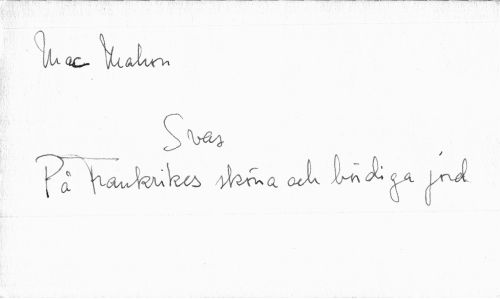 Mac Mahon
Svar
På Frankrikes sköna och bördiga jord